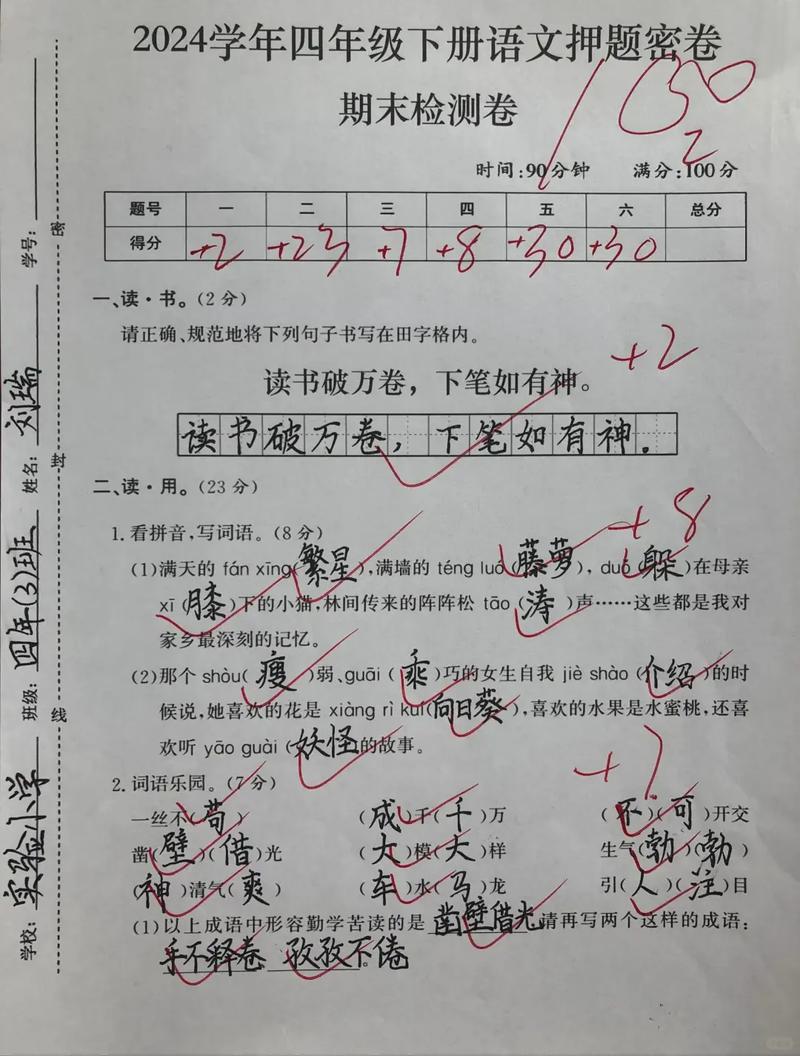 2024学年四年级下册语文押题密卷
期末检测卷
100
2
时间:90分钟 满分:100分
题号 一 二 三 四 五 六 总分
得分 +2 +23 +7 +8 +30 +30
一、读·书。(2分)
请正确、规范地将下列句子书写在田字格内。
+2
读书破万卷,下笔如有神。
读书破万卷,下笔如有神.
二、读·用。(23分)
+8
1.看拼音,写词语。(8分)
(1)满天的 fán xīng(繁星),满墙的 téng luó(藤萝),duǒ(躲)在母亲
xī(膝)下的小猫,林间传来的阵阵松 tāo(涛)声……这些都是我对
家乡最深刻的记忆。
(2)那个 shòu(瘦)弱、guāi(乖)巧的女生自我 jiè shào(介绍)的时
候说,她喜欢的花是 xiàng rì kuí(向日葵),喜欢的水果是水蜜桃,还喜
欢听 yāo guài(妖怪)的故事。
+7
2.词语乐园。(7分)
一丝不(苟) (成)千(千)万 (不)(可)开交
凿(壁)(借)光 (大)模(大)样 生气(勃)(勃)
(神)清气(爽) (车)水(马)龙 引(人)(注)目
(1)以上成语中形容勤学苦读的是 凿壁借光,请再写两个这样的成语:
手不释卷 孜孜不倦。
学校: 实验小学 班级: 四年(3)班 姓名: 刘瑞 学号:
密 封 线